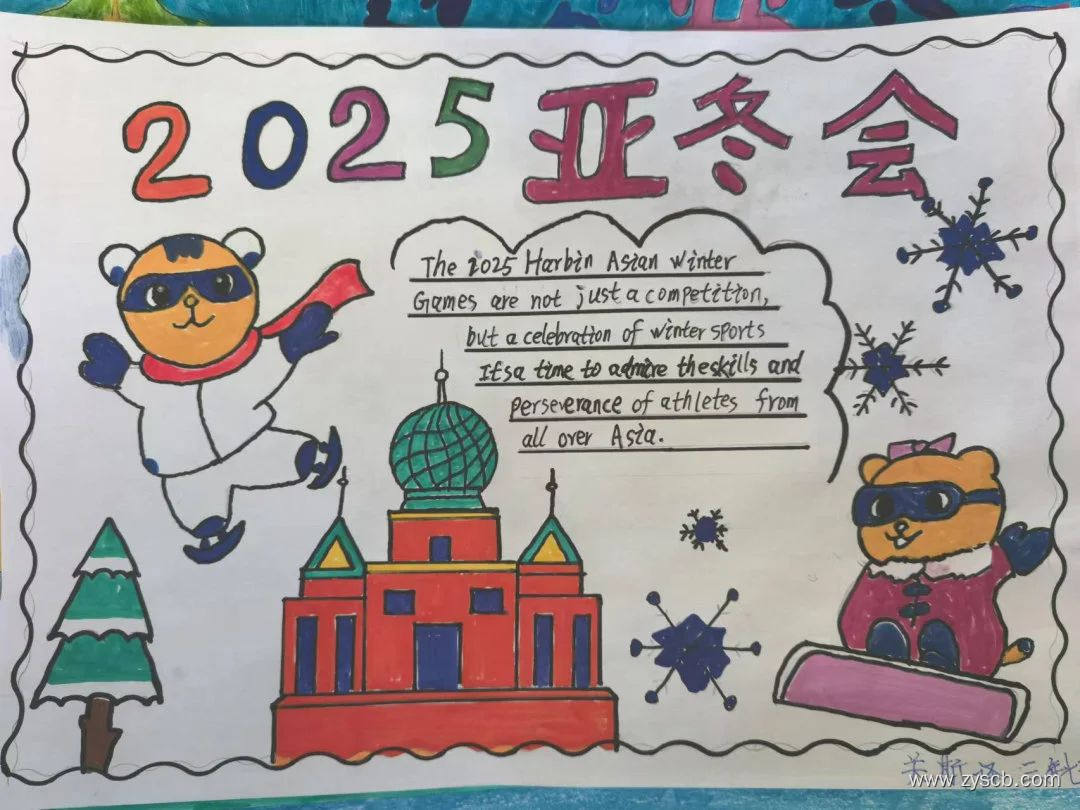 2025亚冬会
The 2025 Harbin Asian Winter
Games are not just a competition,
but a celebration of winter sports
It's a time to admire the skills and
perseverance of athletes from
all over Asia.
www.zyscb.com